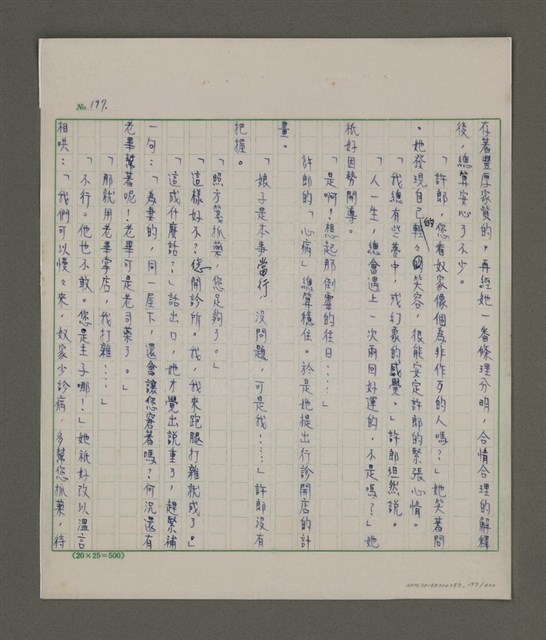 No. 197.
存著豐厚家貲的，再經她一番條理分明，合情合理的解釋
後，總算安心了不少。
「許郎，您看奴家像個為非作歹的人嗎？」她笑著問
。她發現自己輕輕的笑容，很能安定許郎的緊張心情。
「我總有些夢中，或幻象的感覺。」許郎坦然說。
「人一生，總會遇上一次兩回好運的，不是嗎？」她
祇好因勢開導。
「是啊！想起那倒霉的往日……」
許郎的「心病」總算穩住。於是她提出行診開店的計
畫。
「娘子是本事當行，沒問題，可是我！……」許郎沒有
把握。
「照方箋抓藥，您足夠了。」
「這樣好不？您開診所。我，我來跑腿打雜就成了。」
「這成什麼話？」話出口，她才覺出說重了，趕緊補
一句：「為妻的，同一屋下，還會讓您窘著嗎？何況還有
老畢幫著呢！老畢可是老司藥了。」
「那就用老畢掌店，我打雜……」
「不行。他也不敢。您是主子哪！」她祇好改以溫言
相哄：「我們可以慢慢來，奴家少診病，多幫您抓藥，待
(20×25=500)